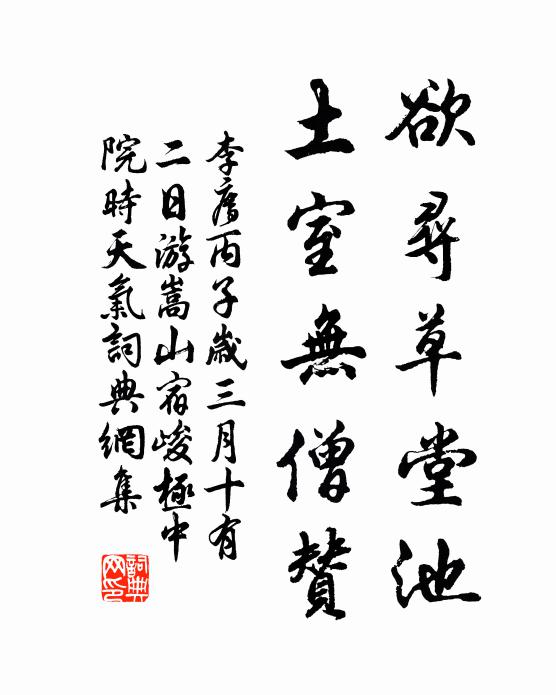 欲尋草堂池
土室無僧贊
李廌丙子歲三月十有
二日游嵩山宿峻極中
院時天氣詞典網集
詞典
网印